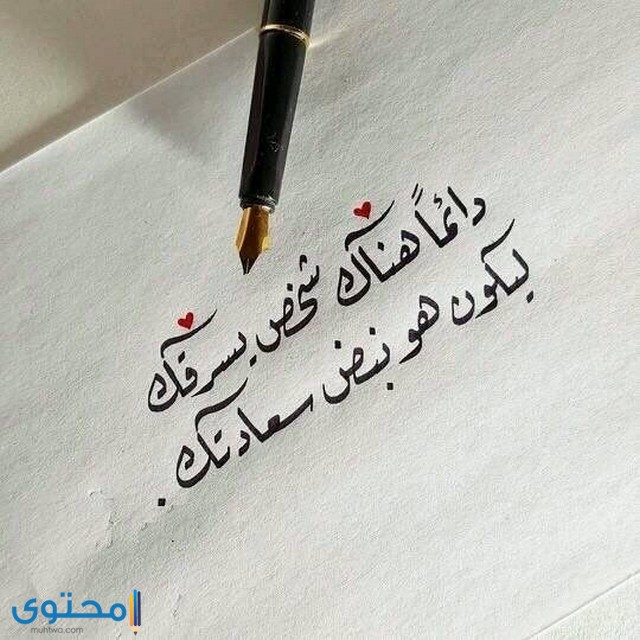 دائماً هناك شخص يسرقك
ليكون هو نبض سعادتك .
محتوى
muhtwa.com